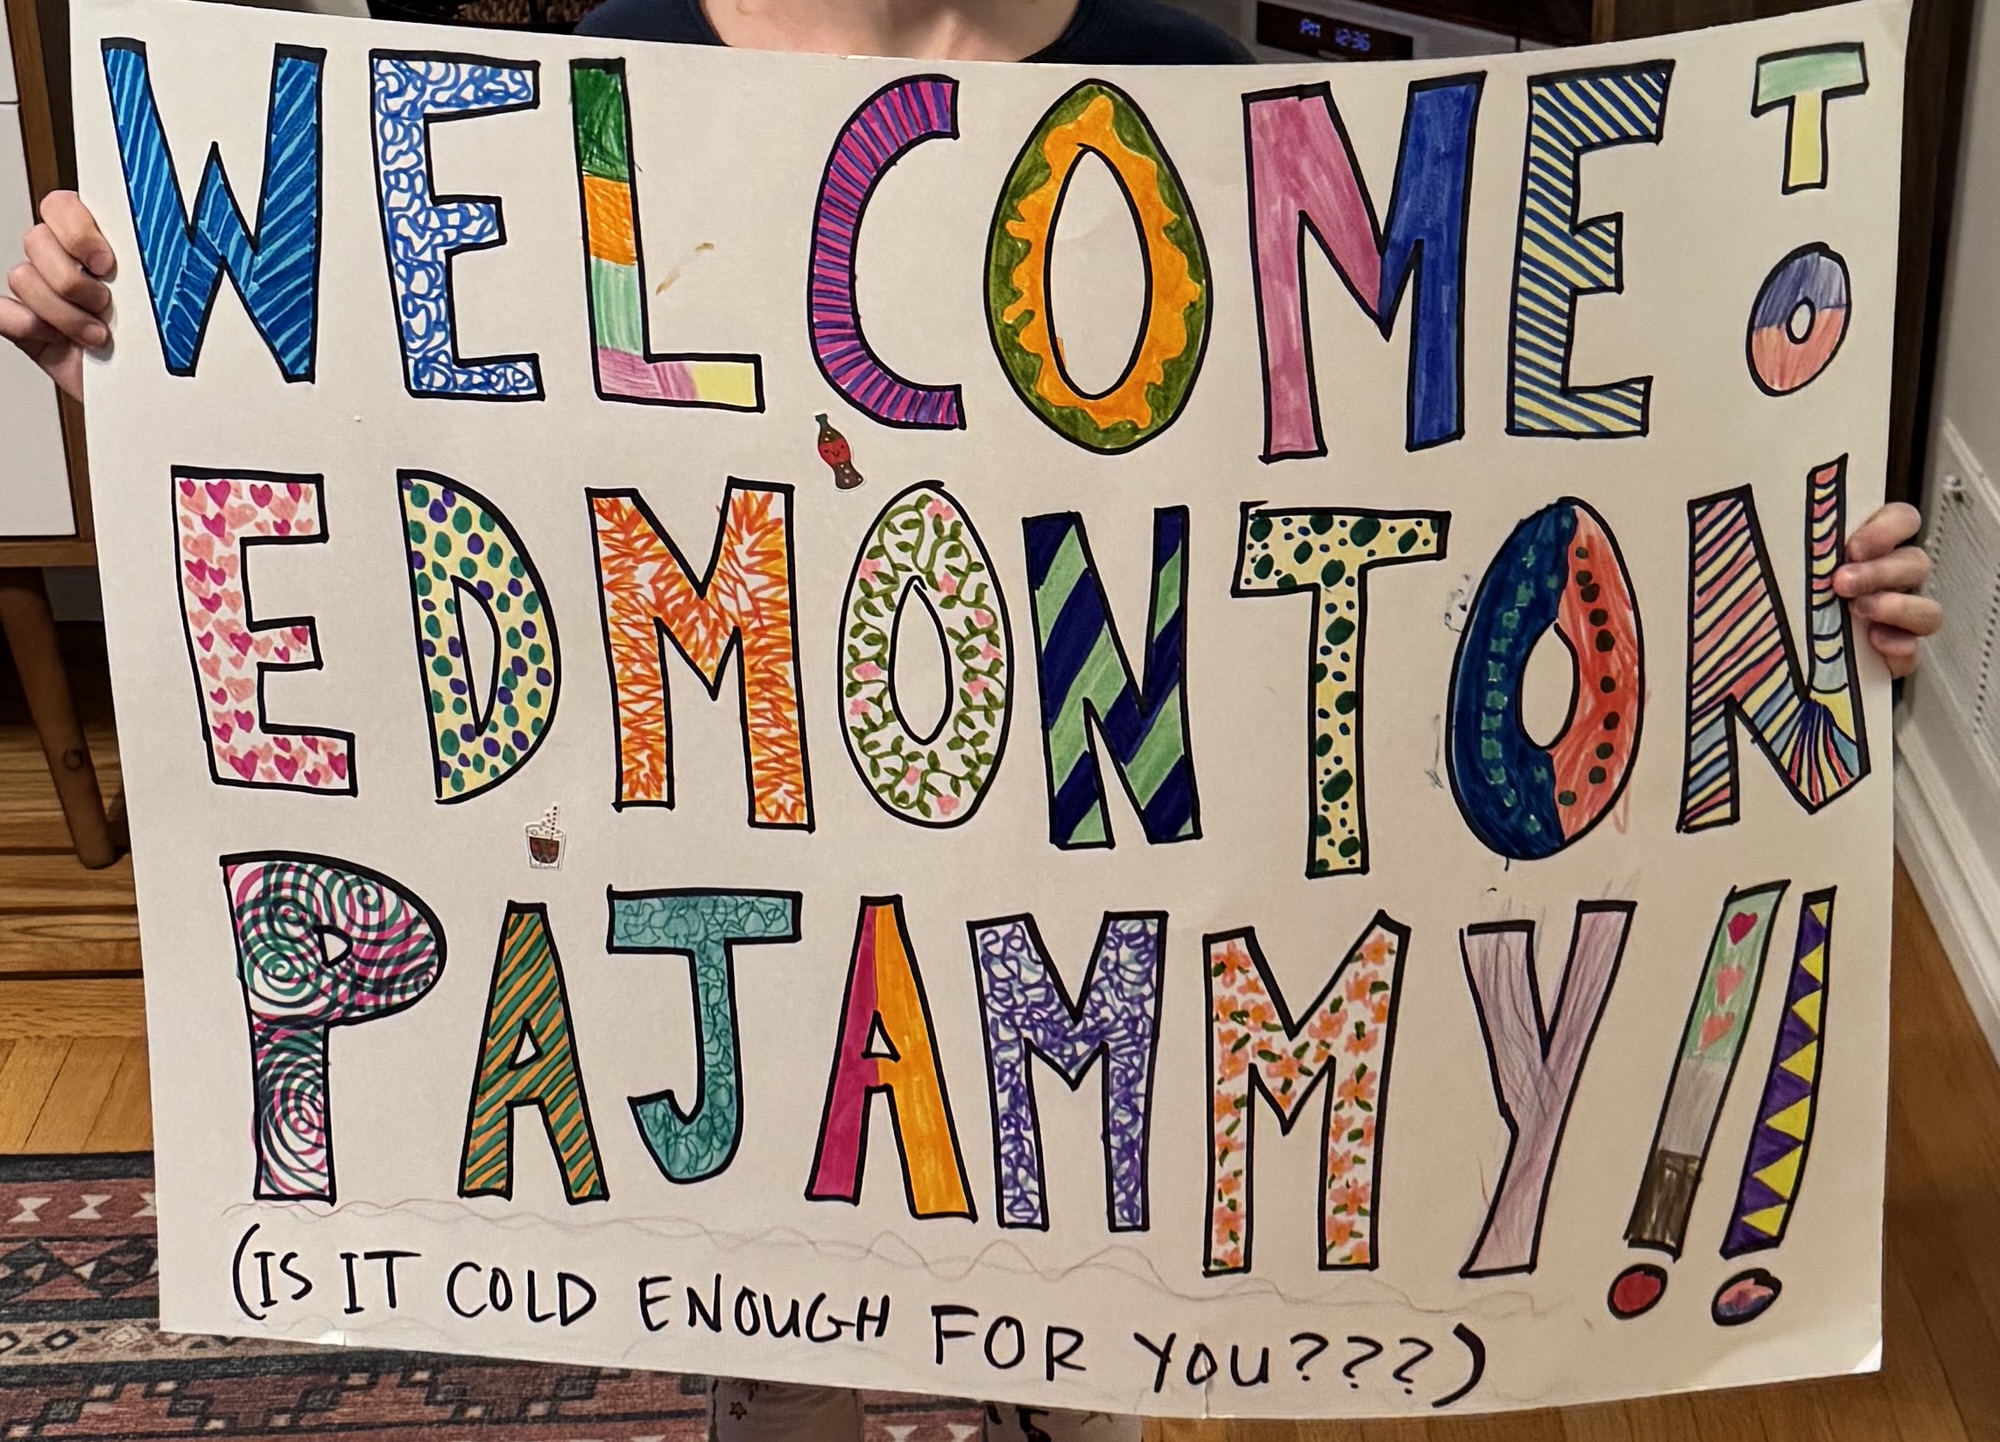 WELCOME TO
EDMONTON
PAJAMMY!!
(IS IT COLD ENOUGH FOR YOU???)
PM 12:36